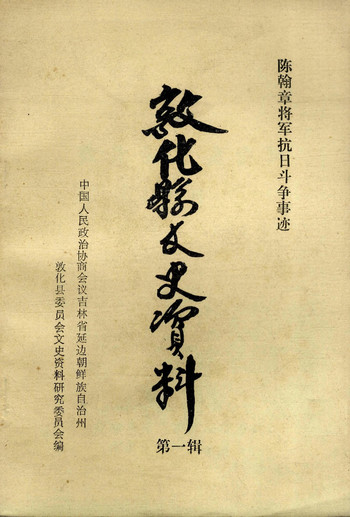 陈翰章将军抗日斗争事迹
敦化县文史资料
第一辑
中国人民政治协商会议吉林省延边朝鲜族自治州
敦化县委员会文史资料研究委员会编